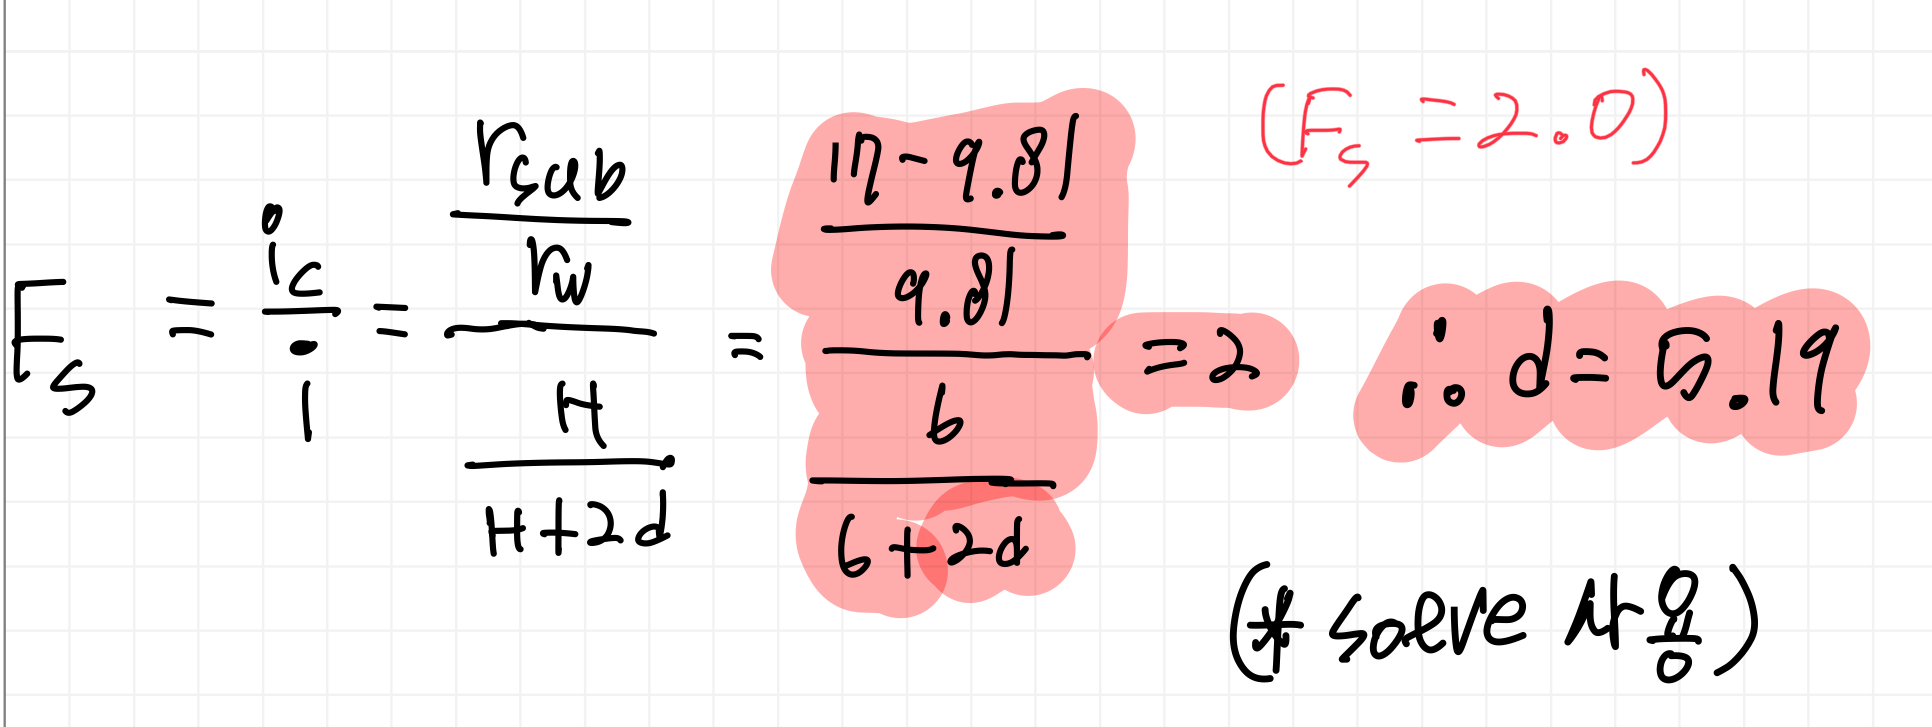 (Fs = 2.0)
Fs = ic / i = (rsub / rw) / (H / (H+2d)) = ((17 - 9.81) / 9.81) / (6 / (6+2d)) = 2 ∴ d = 5.19
(* solve 사용)